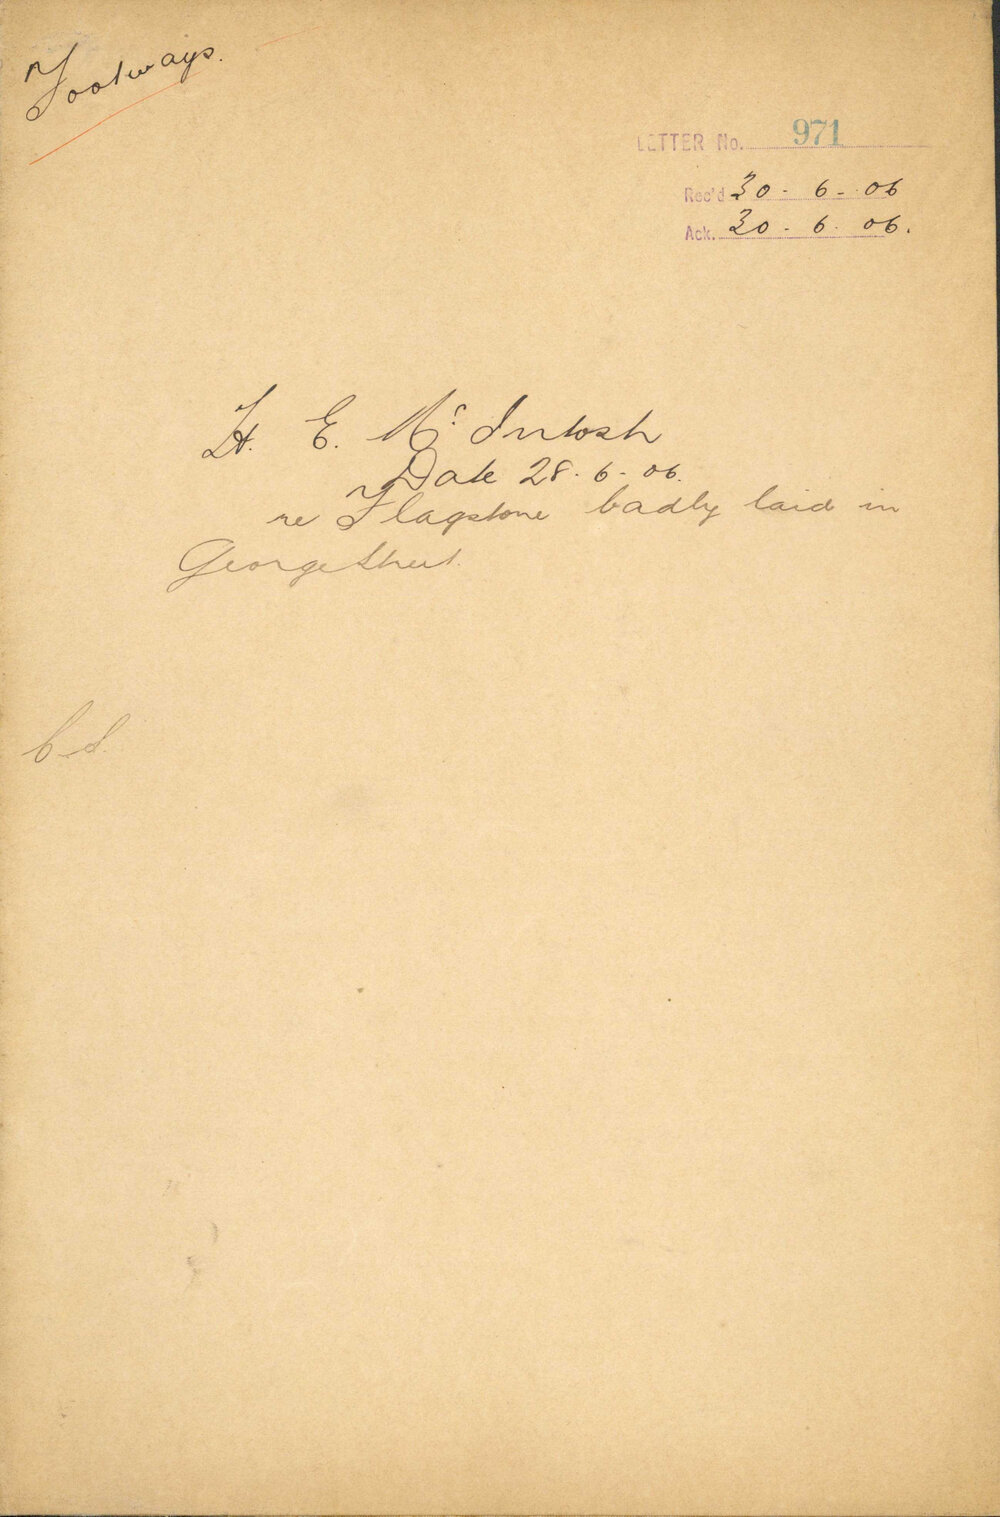 Footways.
LETTER No. 971
Rec'd 30 - 6 - 06
Ack. 30 - 6 - 06.
H. E. McIntosh
Date 28 - 6 - 06.
re Flagstone badly laid in
George Street.
C.S.